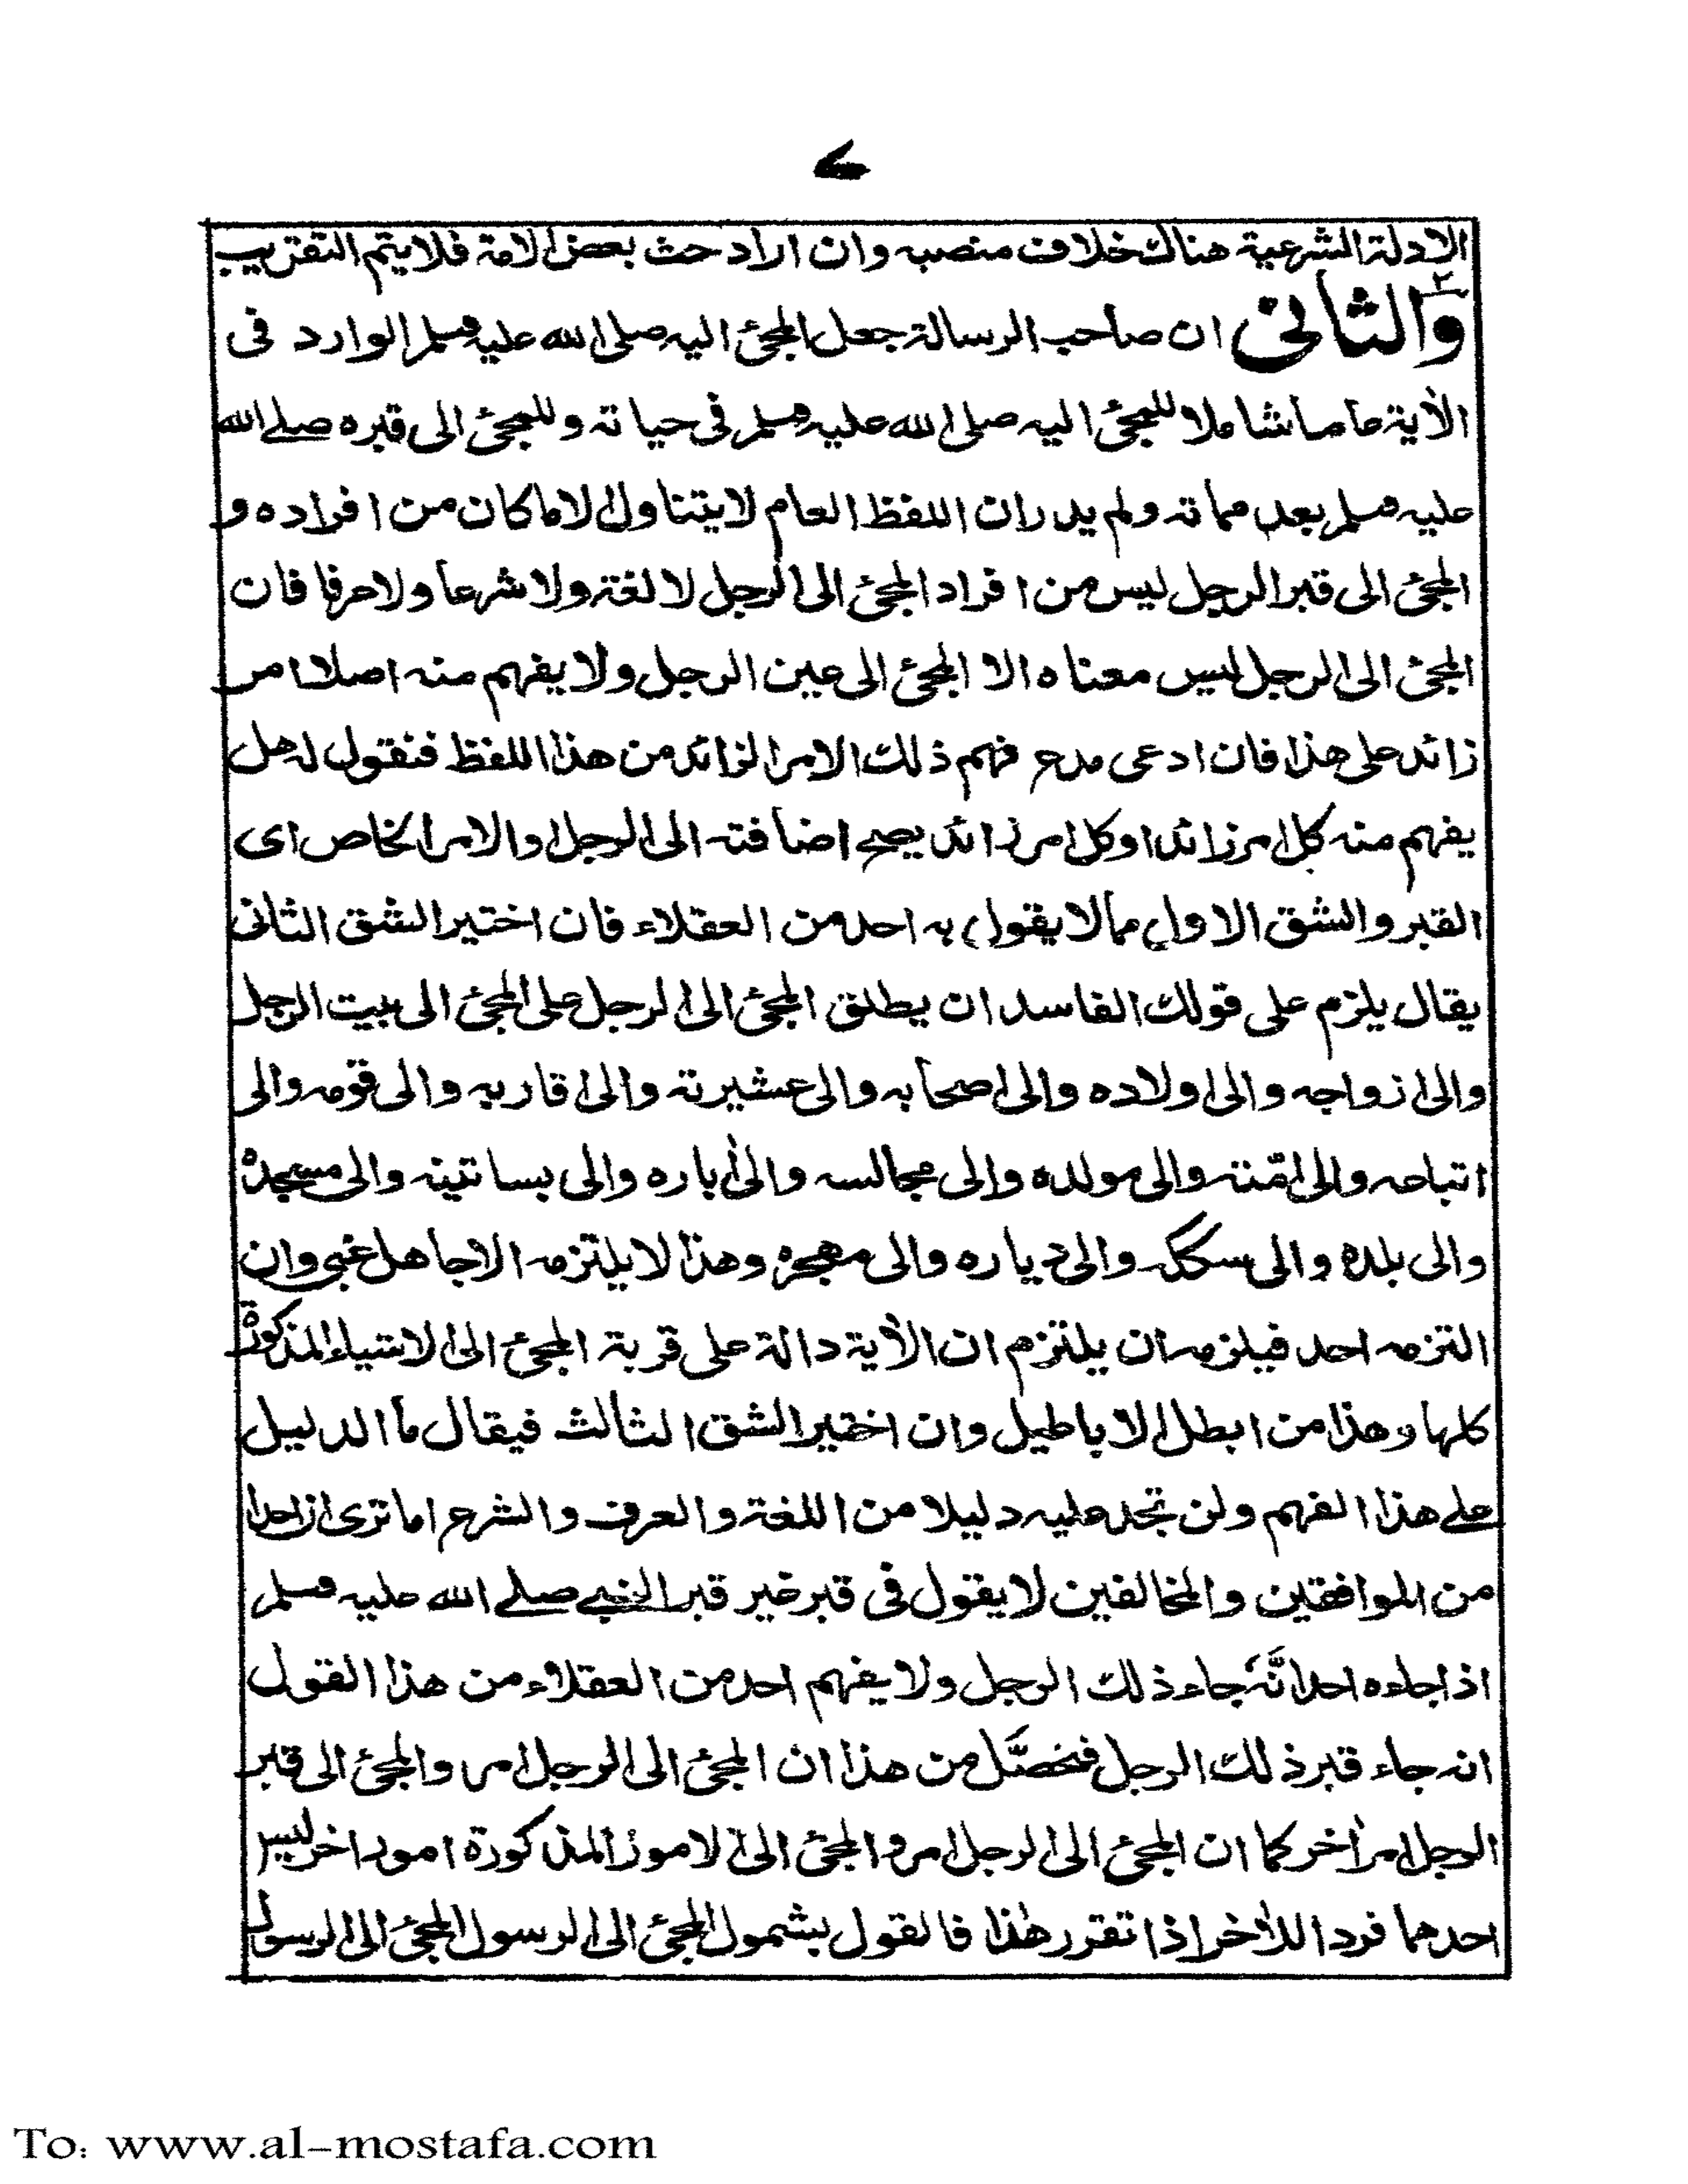 ۷
الادلة الشرعية هناك خلاف منصبه وان اراد حث بعض الامة فلا يتم التقريب
۲
والثانى ان صاحب الرسالة جعل المجئ اليه صلى الله عليه وسلم الوارد فى
الاٰية عاما شاملا للمجئ اليه صلى الله عليه وسلم فى حياته وللمجئ الى قبره صلے الله
عليه وسلم بعد مماته ولم يدر ان اللفظ العام لا يتناول الا ما كان من افراده و
المجئ الى قبر الرجل ليس من افراد المجئ الى الرجل لا لغة ولا شرعا ولا عرفا فان
المجئ الى الرجل ليس معناه الا المجئ الى عين الرجل ولا يفهم منه اصلا امر
زائد على هذا فان ادعى مدع فهم ذلك الامر الزائد من هذا اللفظ فنقول له هل
يفهم منه كل امر زائد او كل امر زائد يصح اضافته الى الرجل او الامر الخاص اى
القبر والشق الاول مما لا يقول به احد من العقلاء فان اختير الشق الثانى
يقال يلزم على قولك الفاسد ان يطلق المجئ الى الرجل على المجئ الى بيت الرجل
والى ازواجه والى اولاده والى اصحابه والى عشيرته والى اقاربه والى قومه والى
اتباعه والى امّته والى مولده والى مجالسه والى اٰباره والى بساتينه والى مسجده
والى بلده والى سككه والى دياره والى مهجره وهذا لا يلتزمه الا جاهل غبى وان
التزمه احد فيلزمه ان يلتزم ان الاٰية دالة على قربة المجئ الى الاشياء المذكورة
كلها وهذا من ابطل الاباطيل وان اختير الشق الثالث فيقال ما الدليل
علے هذا الفهم ولن تجد عليه دليلا من اللغة والعرف والشرع اما ترى ان احدا
من الموافقين والمخالفين لا يقول فى قبر غير قبر النبے صلے الله عليه وسلم
اذا جاءه احد انَّه جاء ذلك الرجل ولا يفهم احد من العقلاء من هذا القول
انه جاء قبر ذلك الرجل فتحصَّل من هذا ان المجئ الى الرجل امر والمجئ الى قبر
الرجل امر اٰخر كما ان المجئ الى الرجل امر والمجئ الى الامور المذكورة امور اخر ليس
احدهما فردا للاٰخر اذا تقرر هٰذا فالقول بشمول المجئ الى الرسول المجئ الى الرسول
To: www.al-mostafa.com